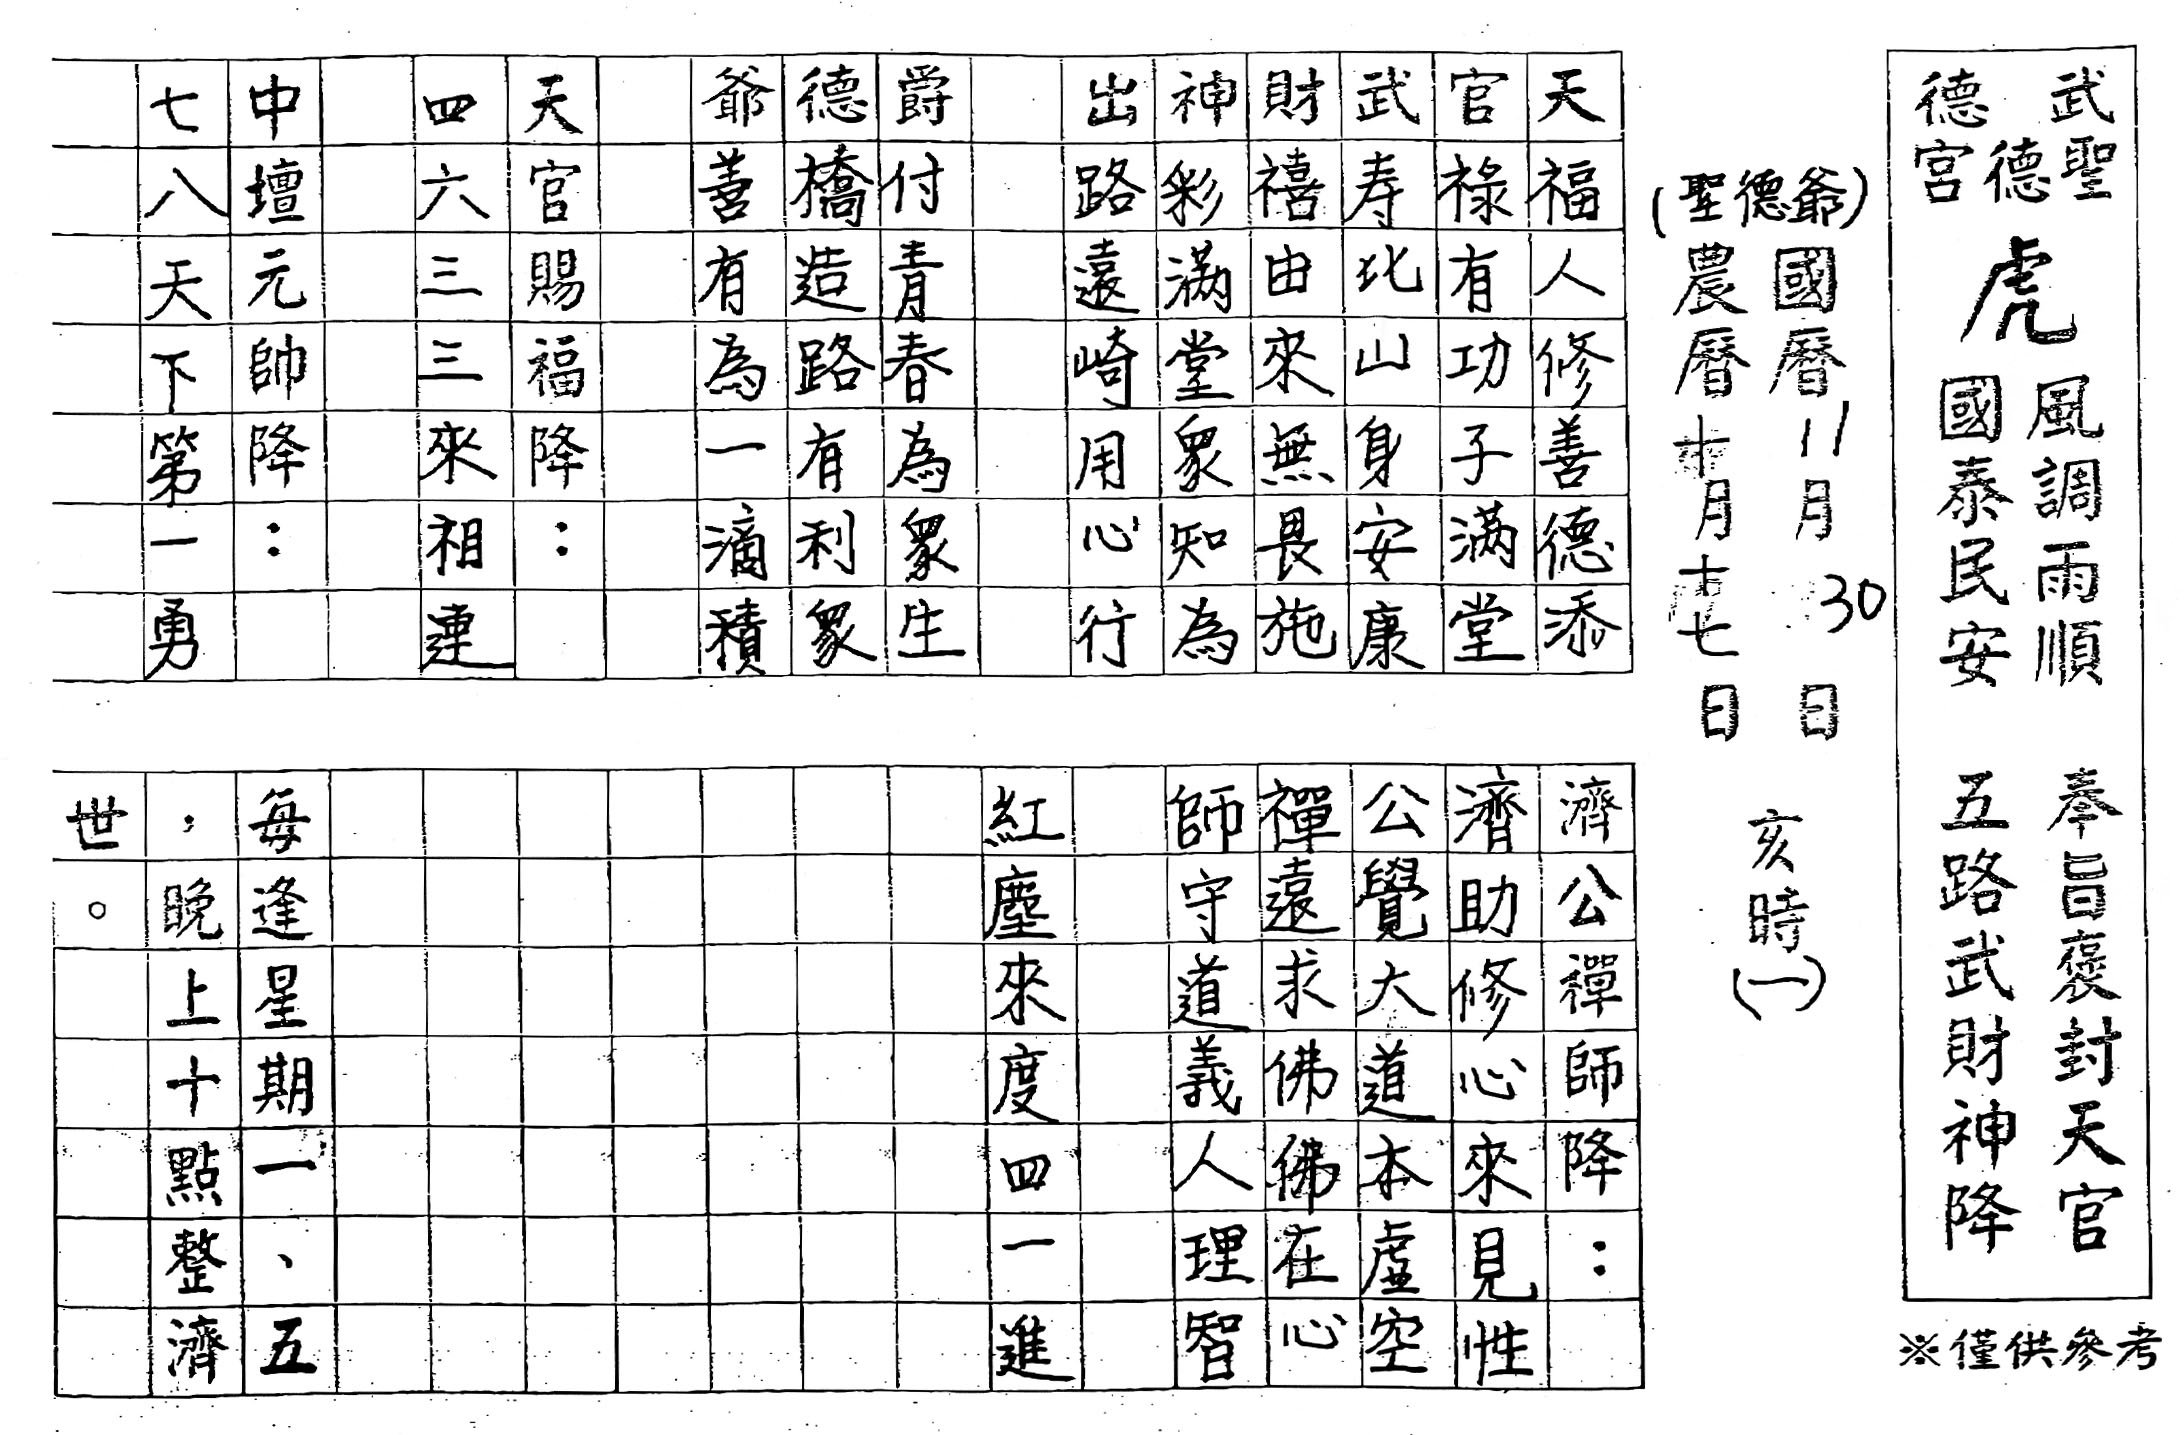 武聖德德宮
虎
風調雨順
國泰民安
奉旨褒封天官
五路武財神降
※僅供參考
(聖德爺)
國曆11月30日
農曆十月十七日
亥時(一)
天福人修善德添
官祿有功子滿堂
武寿北山身安康
財禧由來無畏施
神彩滿堂眾知為
出路遠崎用心行
爵付青春為眾生
德橋造路有利眾
爺善有為一滴積
天官賜福降:
四六三三來相連
中壇元帥降:
七八天下第一勇
濟公禪師降:
濟助修心來見性
公覺大道本虛空
禪遠求佛佛在心
師守道義人理智
紅塵來度四一進
每逢星期一、五
，晚上十點整濟
世。